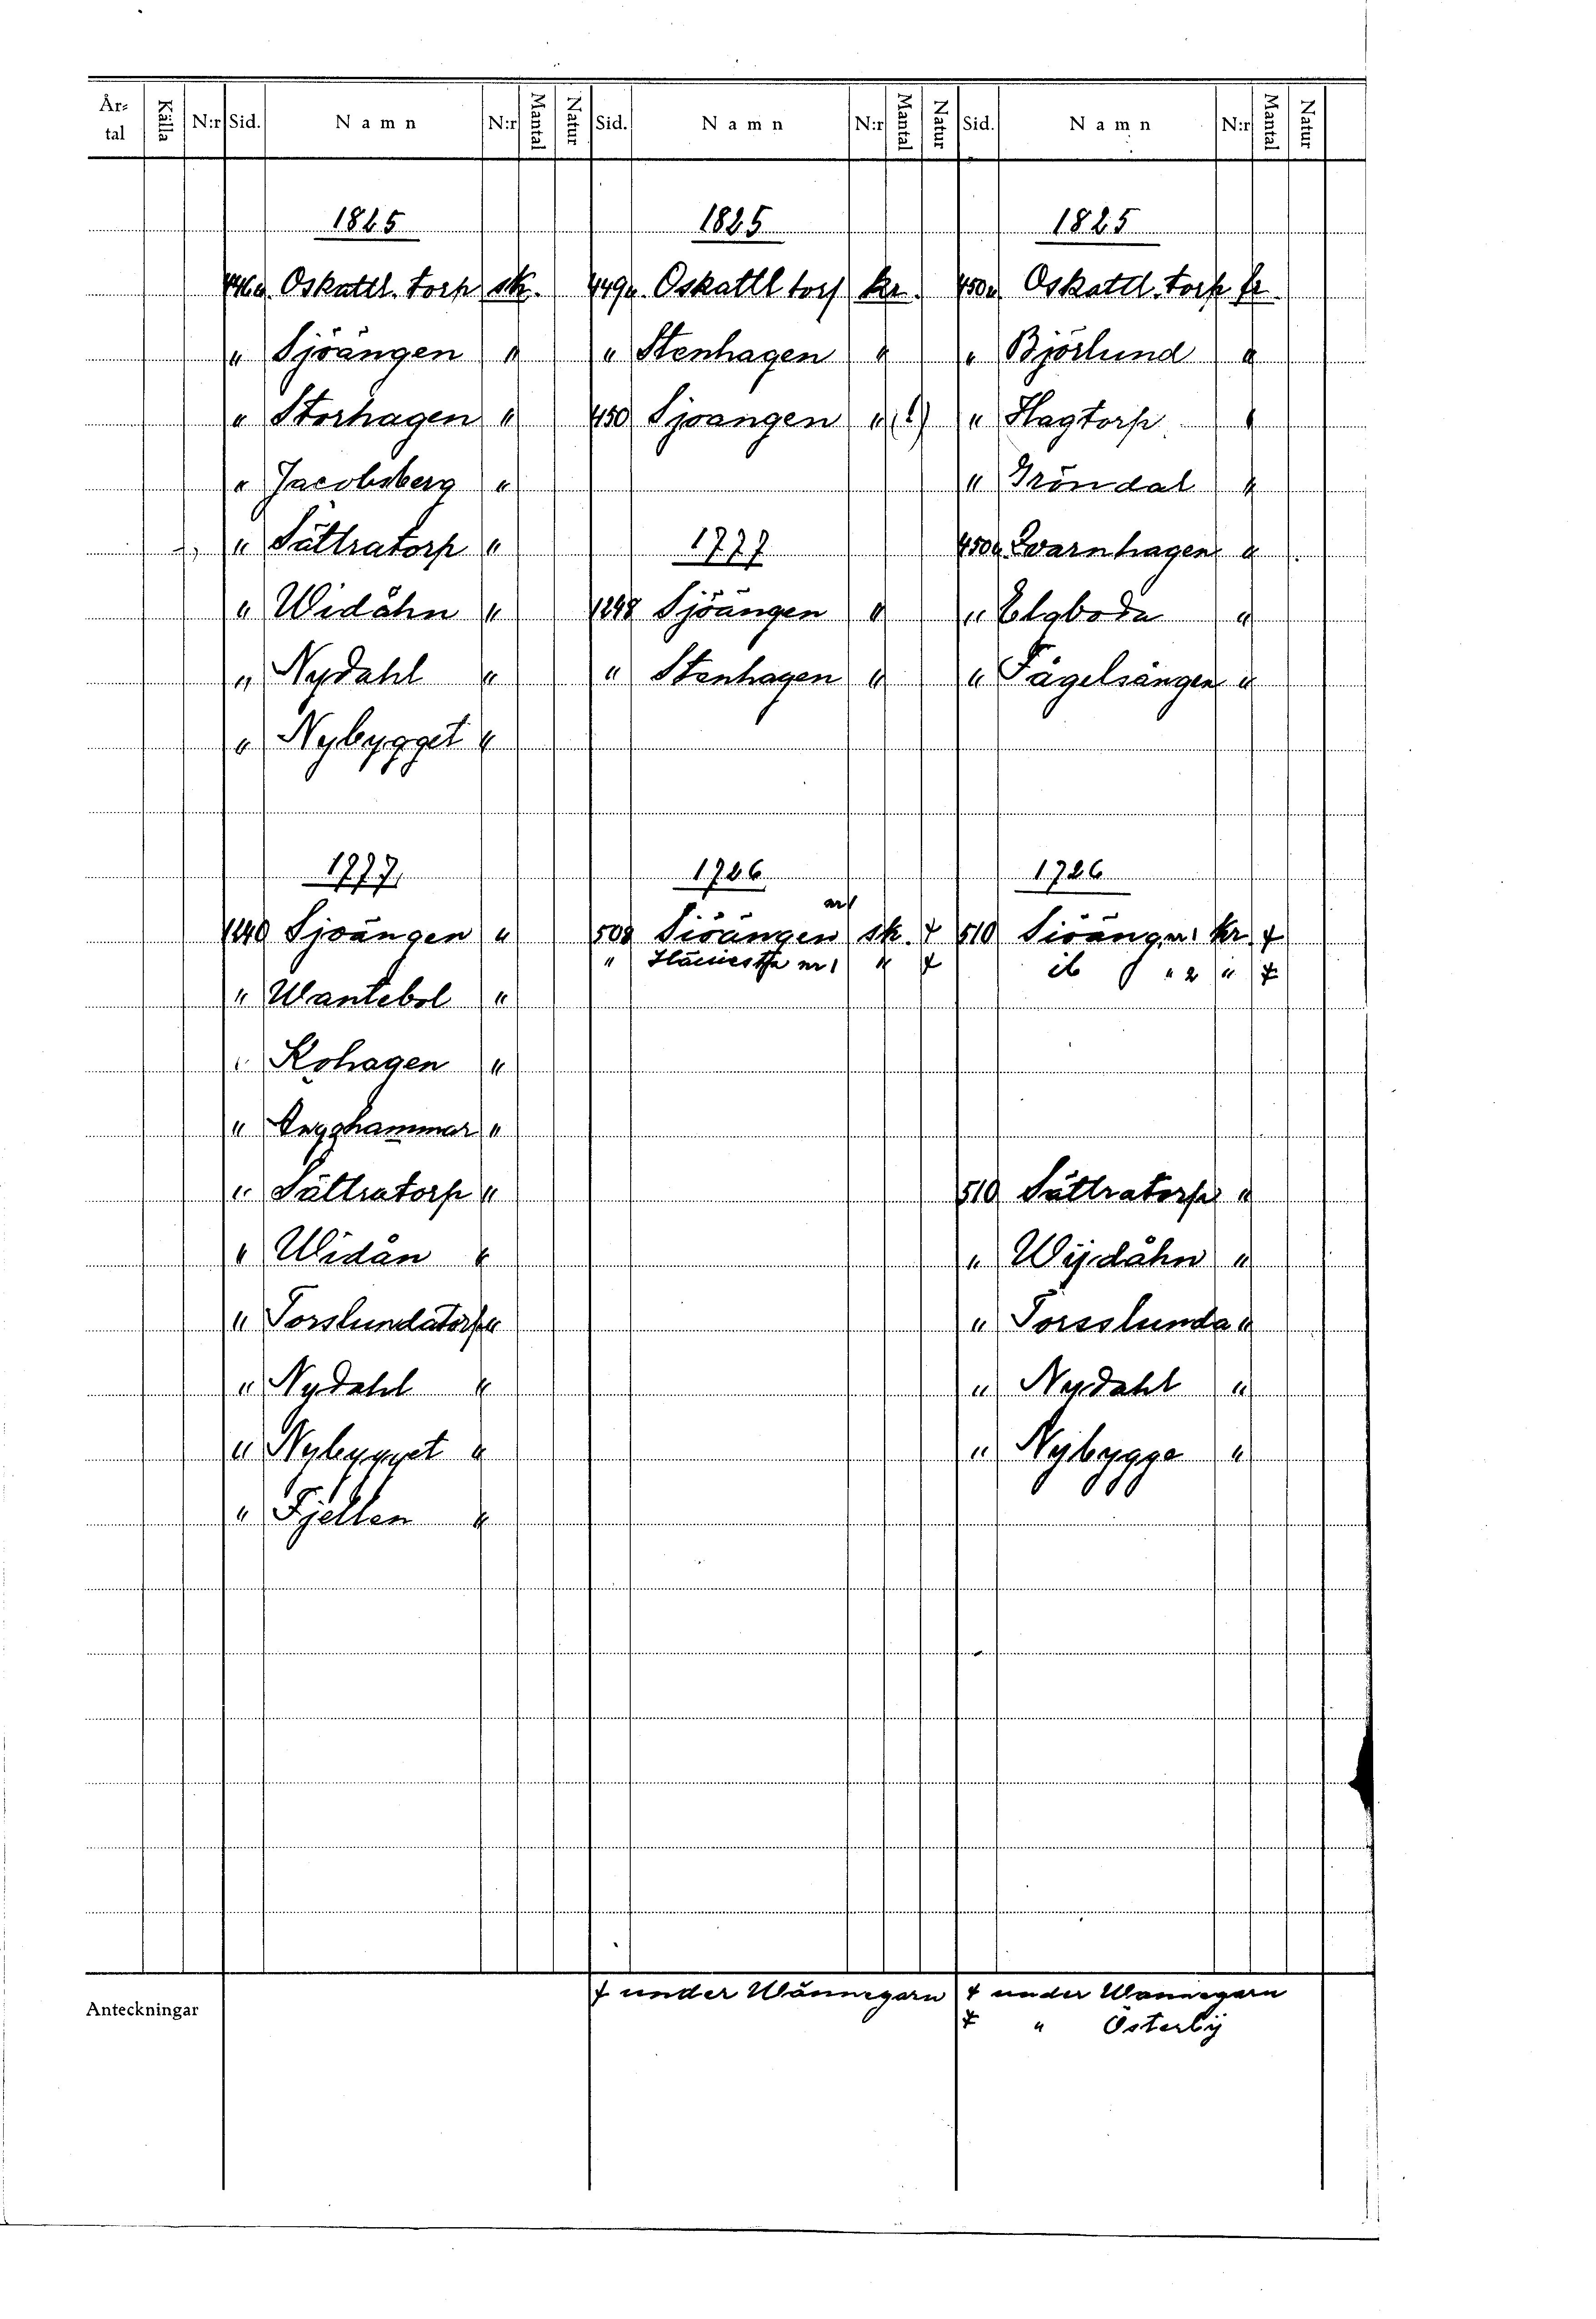 År-tal Källa N:r Sid. Namn N:r Mantal Natur Sid. Namn N:r Mantal Natur Sid. Namn N:r Mantal Natur
1825 1825 1825
446a Oskattl. torp sk. 449a Oskattl torp kr. 450a Oskattl. torp fr
" Sjöängen " " Stenhagen " " Björlund "
" Storhagen " 450 Sjoangen " (?) " Hagtorp "
" Jacobsberg " " Gröndal "
" Sättratorp " 1777 450a Qvarnhagen "
" Widåhn " 1248 Sjöängen " " Elgboda "
" Nydahl " " Stenhagen " " Fågelsången "
" Nybygget "
1777 1726 1726
1240 Sjoängen " 508 Siöängen nr1 sk. + 510 Siöängen kr. +
" Wantebol " " nr 1 " + ib " 2 " ‡
" Kohagen "
" "
" Sättratorp " 510 Sättratorp "
" Widån " " Wijdåhn "
" Torslundatorp " " Torsslunda "
" Nydahl " " Nydahl "
" Nybygget " " Nijbygge "
" Fjellen "
Anteckningar + under Wännegarn + under Wannegarn
‡ " Österbÿ